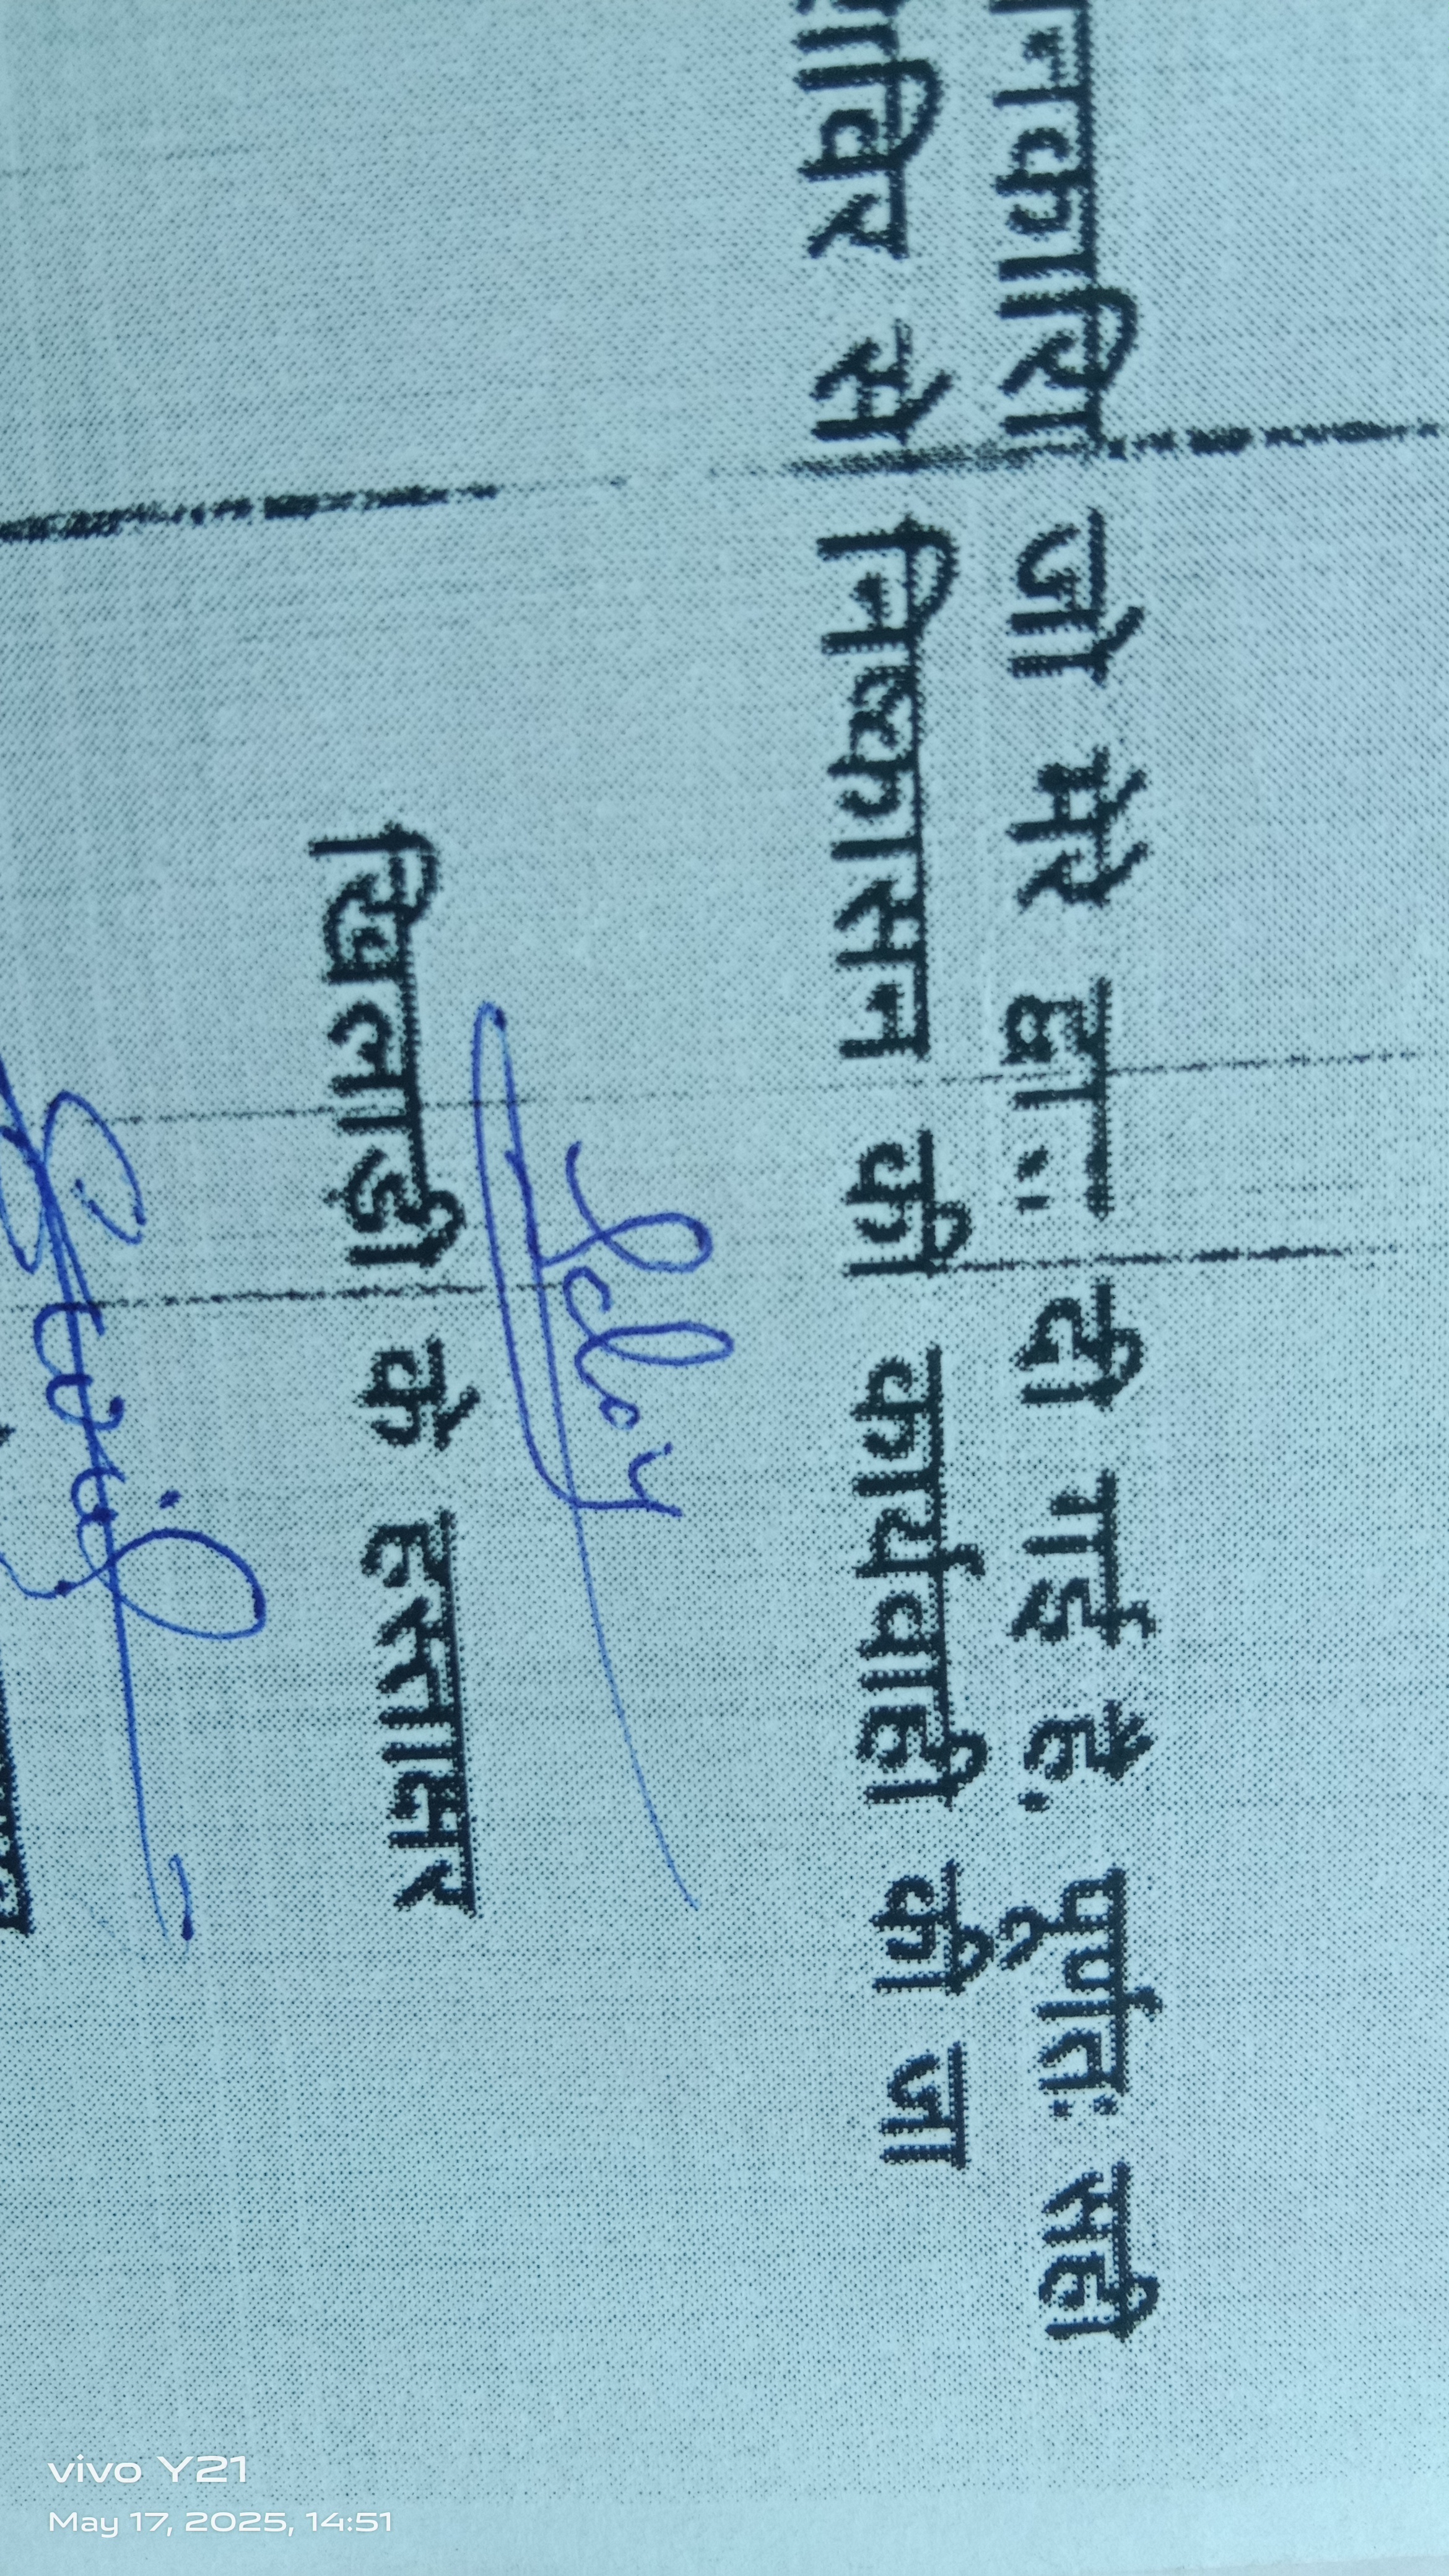 नकारी जो मेरे द्वाः दी गई है. पूर्णतः सही
विर से निष्कासन की कार्यवाही की जा
खिलाड़ी के हस्ताक्षर
vivo Y21
May 17, 2025, 14:51